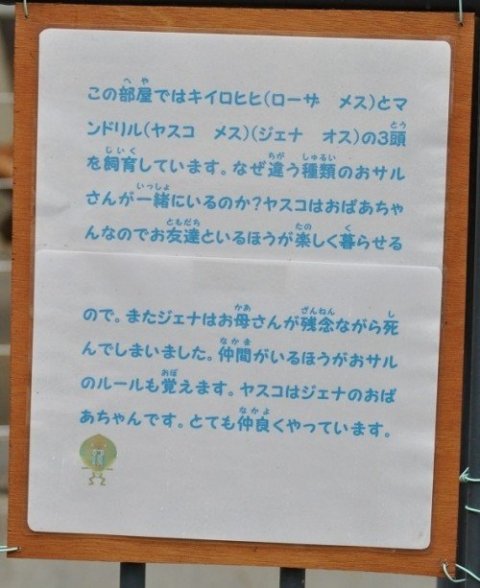 この部屋ではキイロヒヒ(ローザ　メス)とマ
ンドリル(ヤスコ　メス)(ジェナ　オス)の3頭
を飼育しています。なぜ違う種類のおサル
さんが一緒にいるのか?ヤスコはおばあちゃ
んなのでお友達といるほうが楽しく暮らせる
ので。またジェナはお母さんが残念ながら死
んでしまいました。仲間がいるほうがおサル
のルールも覚えます。ヤスコはジェナのおば
あちゃんです。とても仲良くやっています。